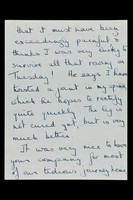 that it must have been
exceedingly painful &
thinks I was very lucky to
survive all that rowing on
Tuesday! He says I have
twisted a joint in my spine
which he hopes to rectify
quite quickly. The leg is
not cured yet, but is very
much better.
It was very nice to have
your company for most
of our tedious journey home